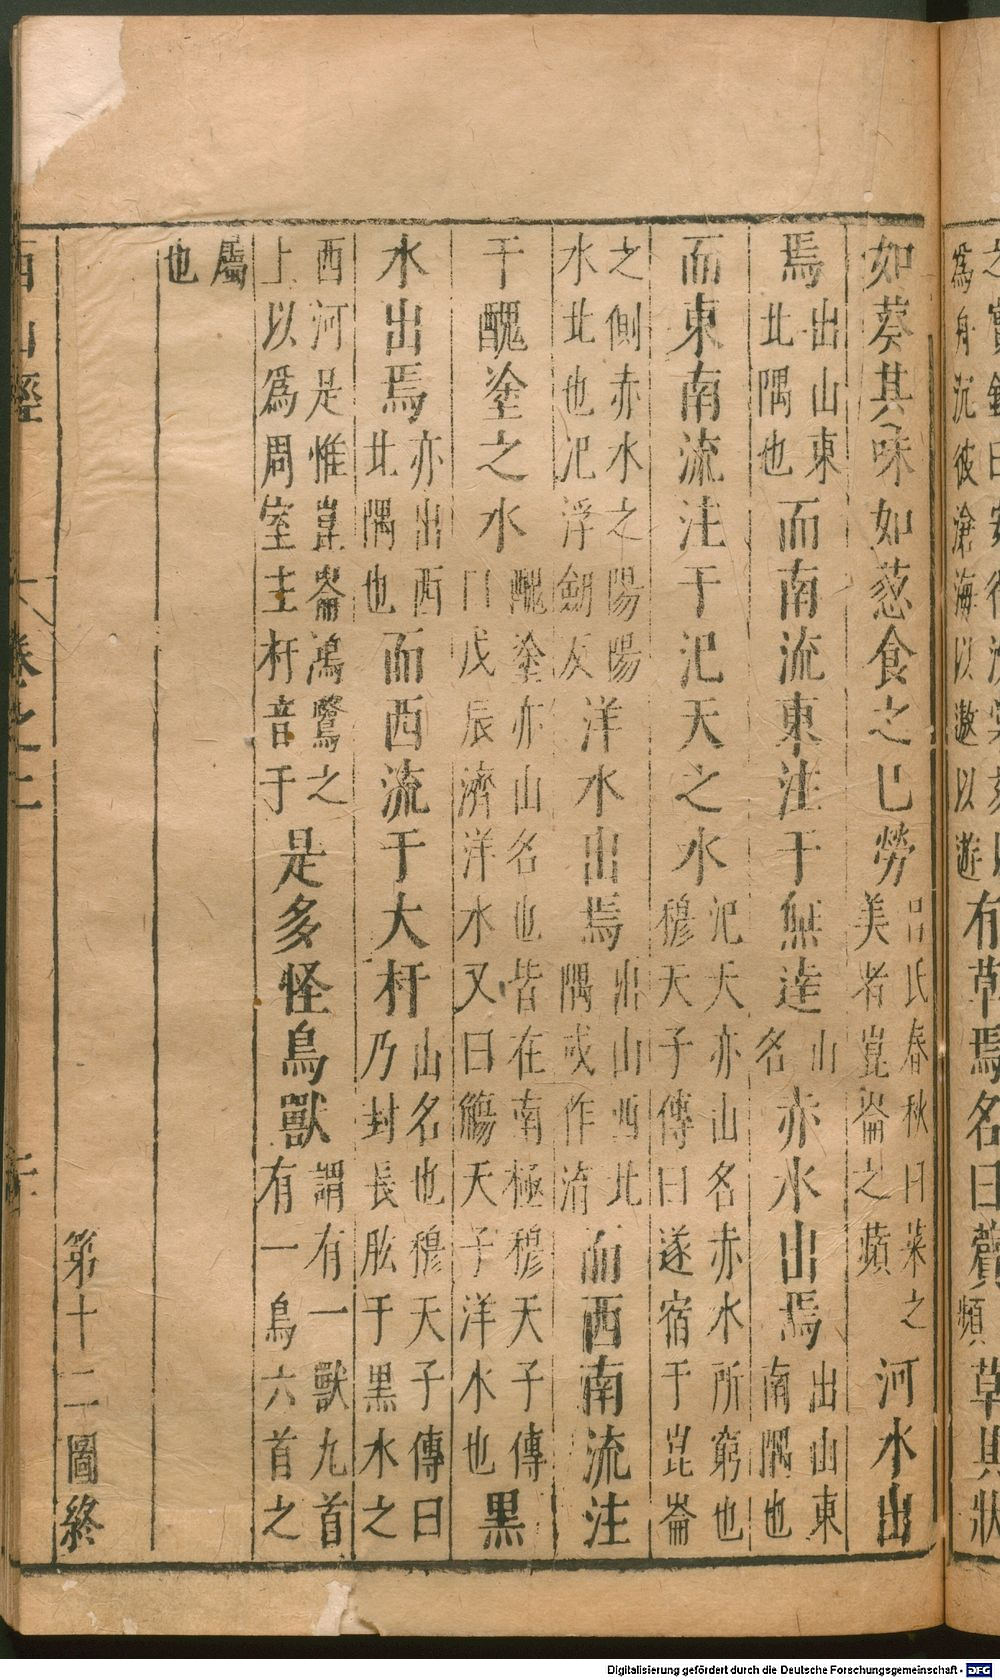 之實
爲舟沉彼滄海以遨以遊
有草焉名曰薲
頻
草其狀
如葵其味如葱食之已勞
呂氏春秋曰菜之
美者崑崙之蘋
河水出
焉
出山東
北隅也
而南流東注于無達
山
名
赤水出焉
出山東
南隅也
而東南流注于汜天之水
汜天亦山名赤水所窮也
穆天子傳曰遂宿于昆崙
之側赤水之陽陽
水北也汜浮劒反
洋水出焉
出山西北
隅或作清
而西南流注
于醜塗之水
醜塗亦山名也皆在南極穆天子傳
曰戊辰濟洋水又曰觴天子洋水也
黑
水出焉
亦出西
北隅也
而西流于大杅
山名也穆天子傳曰
乃封長肱于黑水之
西河是惟崑崙鴻鷺之
上以爲周室主杅音于
是多怪鳥獸
謂有一獸九首
有一鳥六首之
屬
也
第十二圖終
西山經 卷之二
Digitalisierung gefördert durch die Deutsche Forschungsgemeinschaft - DFG